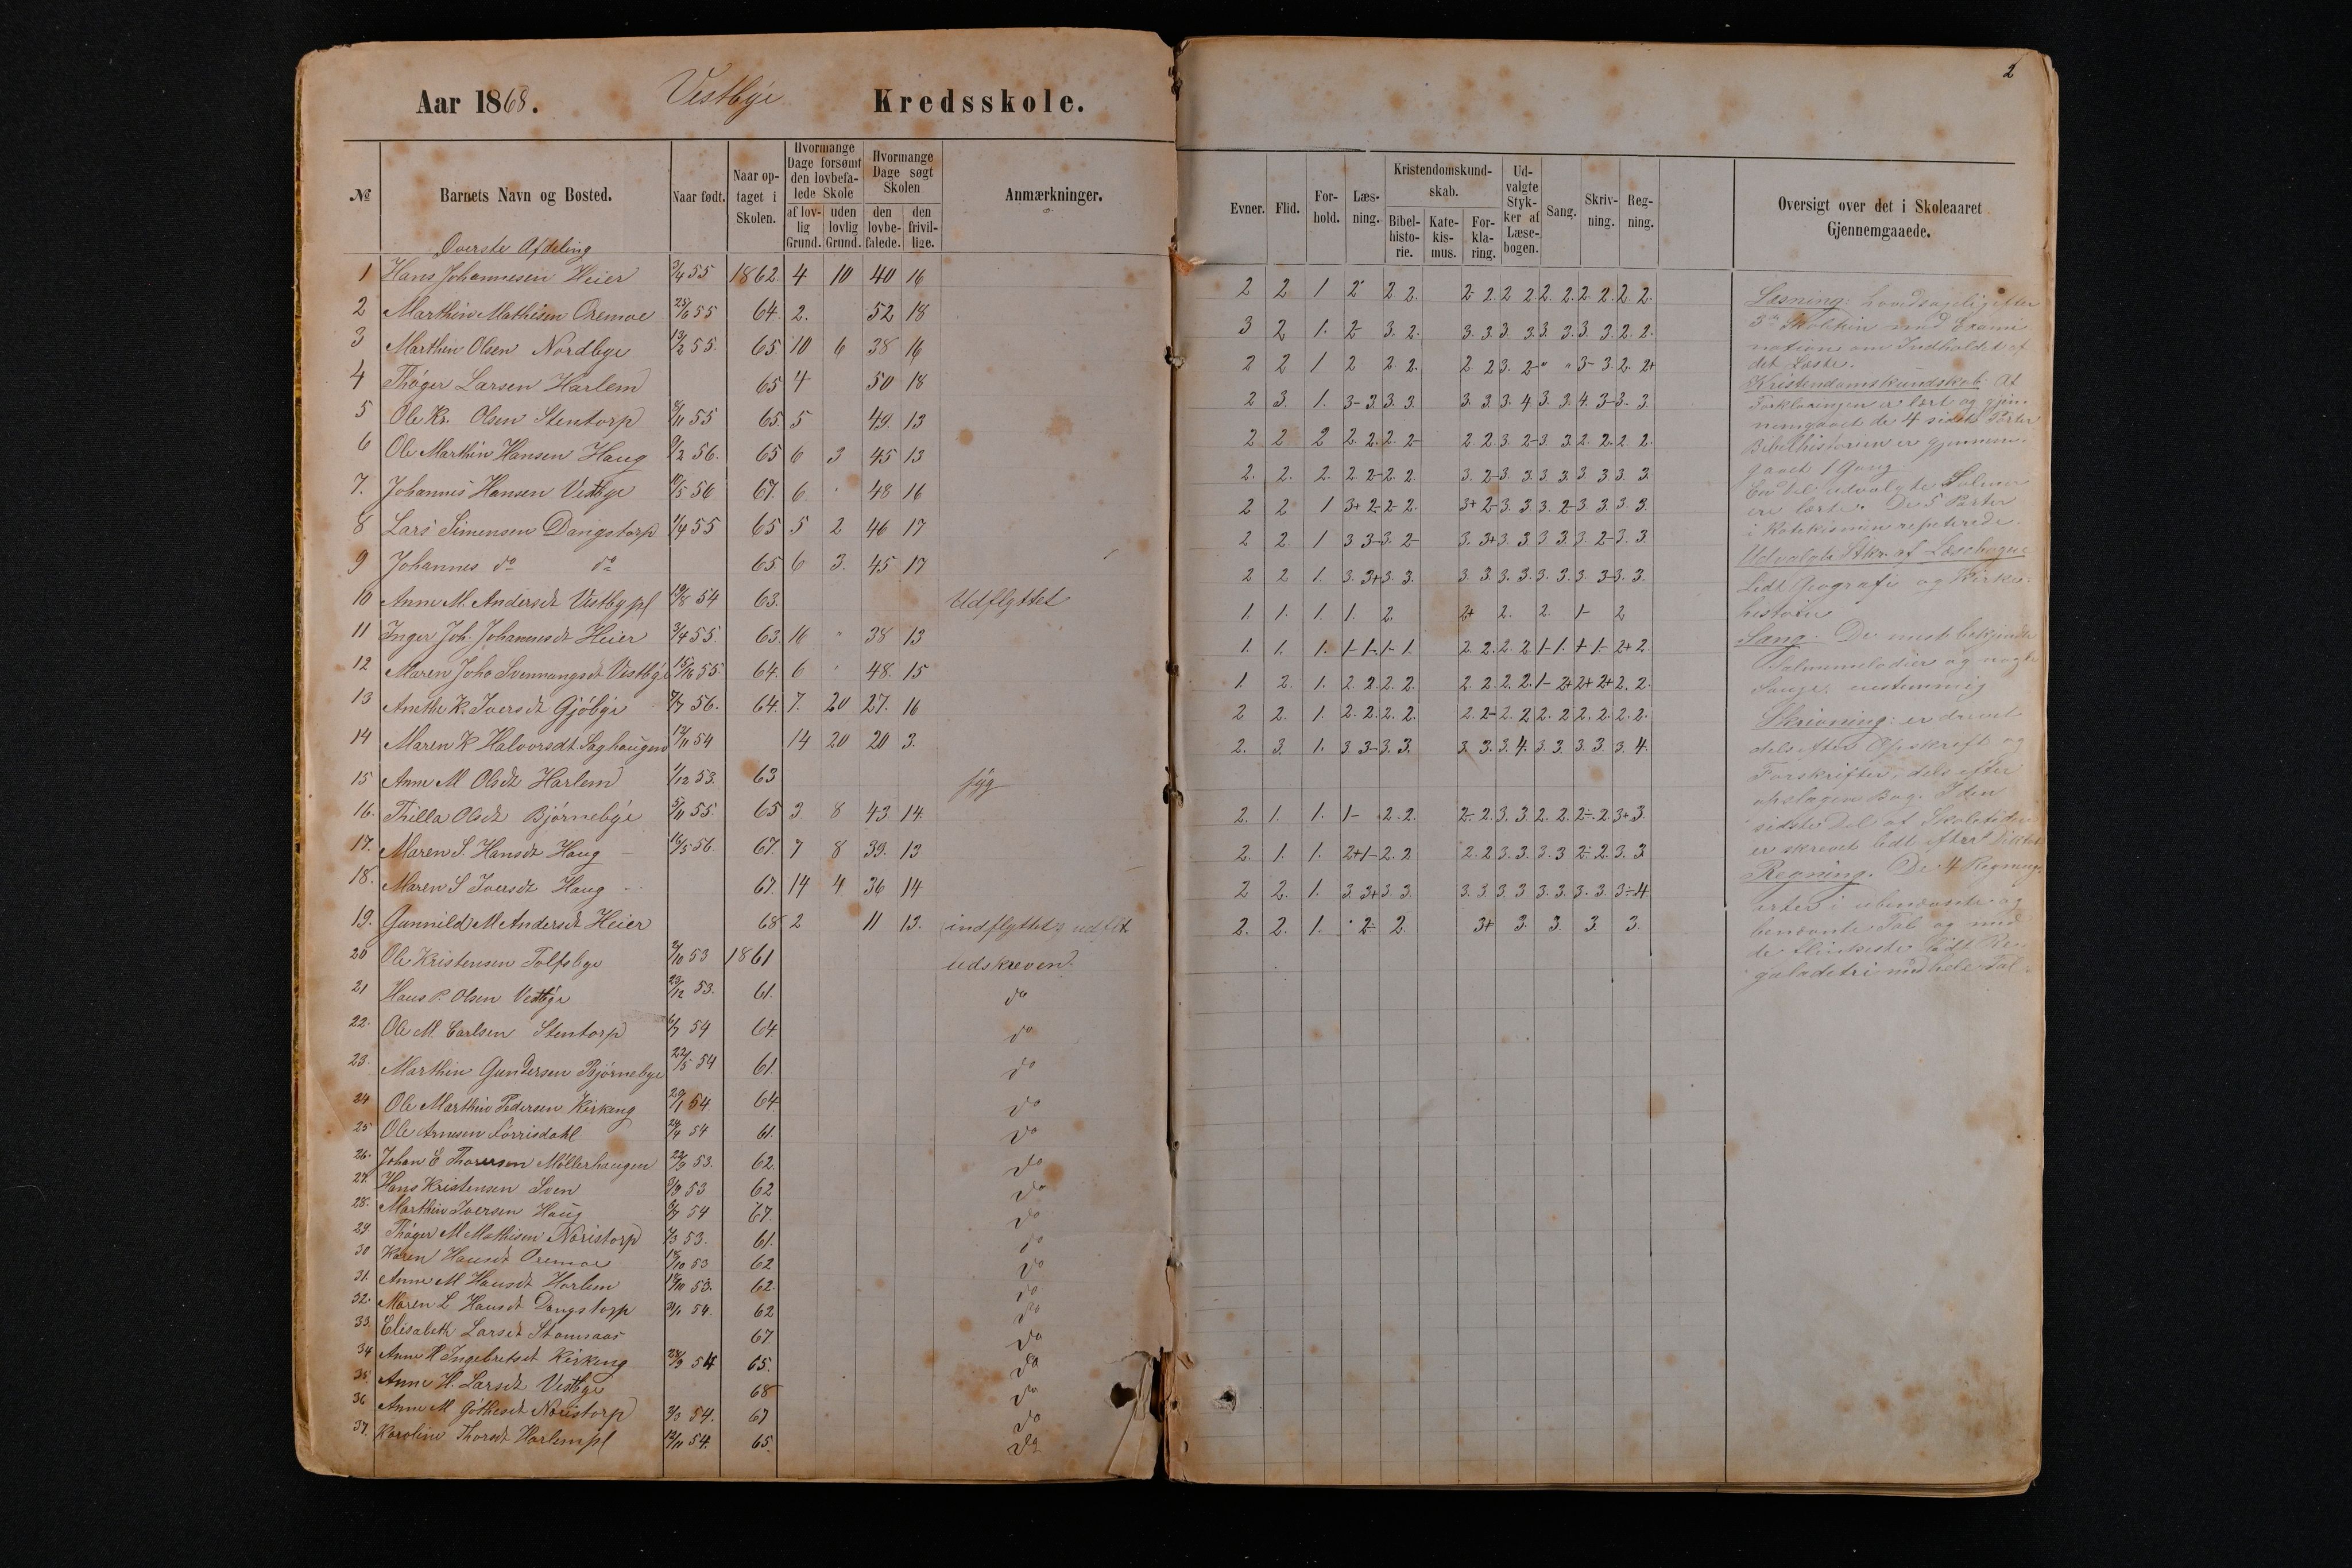 Aar 1868. Vestbye Kredsskole.
№ Barnets Navn og Bosted. Naar født. Naar optaget i Skolen. Hvormange Dage forsømt den lovbefalede Skole af lovlig Grund. uden lovlig Grund. Hvormange Dage søgt Skolen den lovbefalede. den frivillige. Anmærkninger.
Øverste Afdeling
1 Hans Johannesen Heier 3/4 55 1862 4 10 40 16
2 Marthin Mathisen Oremoe 55 64. 2. 52 18
3 Marthin Olsen Nordbye 13/2 55. 65 10 6 38 16
4 Thøger Larsen Harlem 65 4 50 18
5 Ole Kr. Olsen Stentorp 55 65. 5 49. 13
6 Ole Marthin Hansen Haug 56. 65 6 3 45 13
7. Johannes Hansen Vestbye 56 67. 6 48 16
8 Lars Simensen Dangstorp 1/4 55 65 5 2 46 17
9 Johannes do do 65 6 3. 45 17
10 Anne M. Andersdt Vestbypl 19/8 54 63. Udflyttet
11 Inger Joh. Johannesdt Heier 3/4 55. 63. 16 " 38 13
12 Maren Joha Svennungsdt Vestbye 55. 64. 6 48. 15
13 Anethe K. Iversdt Gjøbye 56. 64. 7. 20 27. 16
14 Maren K Halvorsdt Saghaugen 12/11 54 14 20 20 3.
15 Anne M Olsdt Harlem 1/12 53. 63 syg
16. Thilla Olsdt Bjørnebye 5/11 55. 65 3 8 43 14.
17. Maren S. Hansdt Haug 16/5 56. 67 7 8 39. 13
18. Maren S Iversdt Haug 67. 14 4 36 14
19. Gunnild M Andersdt Heier 68 2 11 13. indflyttet
20 Ole Kristensen Tolfsbye 53 1861 udskreven.
21 Hans P. Olsen Vestbye 23/12 53. 61. do
22. Ole M. Carlsen Stentorp 6/7 54 64. do
23. Marthin Gundersen Bjørnebye 22/5 54 61. do
24 Ole Marthin Pedersen Kirkeng 54 64 do
25 Ole Arnesen Lørrisdahl 54 61. do
26. Johan E Thoresen Møllerhaugen 22/9 53. 62. do
27. Hans Kristensen Sven 53 62 do
28. Marthin Iversen Haug 54 67. do
29. Thøger M Mathisen Noristorp 53. 61. do
30 Karen Hansdt Oremoe 53 62 do
31. Anne M Hansdt Harlem 53. 62. do
32. Maren L Hansdt Dangstorp 54. 62 do
33. Elisabeth Larsdt 67 do
34 Anne H Ingebretsdt Kirkeng 54 65. do
35. Anne H. Larsdt Vestbye 68 do
36 Anne M Noristorp 54. 67 do
37. Karoline Thorsdt Harlempl 12/11 54. 65. do
2
Evner. Flid. Forhold. Læsning. Kristendomskundskab. Bibelhistorie. Katekismus. Forklaring. Udvalgte Stykker af Læsebogen. Sang. Skrivning. Regning. Oversigt over det i Skoleaaret Gjennemgaaede.
2 2 1 2 2 2. 2- 2. 2 2. 2. 2. 2. 2. 2. 2.
3 2 1. 2- 3. 2. 3. 3. 3 3. 3. 3. 3. 3. 2. 2.
2 2 1 2 2 2. 2. 2 3. 2- " " 3- 3. 2. 2+
2 3. 1. 3- 3. 3 3. 3. 3. 3. 4 3. 3. 4. 3- 3. 3.
2 2 2 2. 2. 2. 2- 2. 2 3. 2- 3. 3 2. 2. 2 2.
2. 2. 2. 2. 2- 2. 2. 3. 2- 3. 3. 3. 3. 3. 3 3. 3.
2 2 1 3+ 2- 2- 2. 3+ 2- 3. 3 3. 2- 3. 3. 3. 3.
2 2. 1 3 3- 3. 2- 3. 3+ 3. 3 3. 3. 3. 2- 3. 3
2 2 1. 3. 3+ 3. 3. 3. 3. 3. 3. 3. 3. 3. 3- 3. 3.
1. 1. 1. 1. 2. 2+ 2. 2. 1- 2
1. 1. 1. 1- 1- 1- 1. 2. 2. 2. 2 1- 1. 1- 1- 2+ 2.
1. 2. 1. 2. 2. 2. 2. 2. 2. 2. 2. 1- 2+ 2+ 2+ 2. 2.
2 2. 1. 2. 2. 2. 2. 2. 2- 2. 2 2. 2 2. 2. 2. 2.
2. 3. 1. 3 3- 3. 3. 3. 3. 3. 4. 3. 3. 3. 3. 3. 4.
2. 1. 1. 1- 2. 2. 2- 2. 3. 3. 2. 2. 2- 2. 3+ 3.
2. 1. 1. 2+ 1- 2. 2 2. 2 3. 3. 3. 3 2- 2. 3. 3
2 2. 1. 3. 3+ 3. 3. 3. 3 3. 3 3. 3. 3. 3. 3- 4.
2. 2. 1. 2- 2. 3+ 3. 3. 3. 3.
Læsning: hovedsagelig efter
5te Skoletrin med Exami-
nation om Indholdet af
det Læste.
Kristendomskundskab. Af
Forklaringen er lært og gjen-
nemgaaet de 4 sidste Parter
Bibelhistorien er gjennem-
gaaet 1 Gang.
En Del udvalgte Salmer
ere lærte. De 5 Parter
i Katekismen repeterede.
Udvalgte Stkr. af Læsebogen:
Lidt Geografi og Kirke-
historie
Sang. De mest bekjendte
Salmemelodier og nogle
Sange, enstemmig
Skrivning: er drevet
dels efter Opskrift og
Forskrifter, dels efter
opslagen Bog. I den
sidste Del af Skoletiden
er skrevet lidt efter Diktat
Regning. De 4 Regnings-
arter i ubenævnte og
benævnte Tal og med
de flinkeste lidt Re-
guladetri med hele Tal.